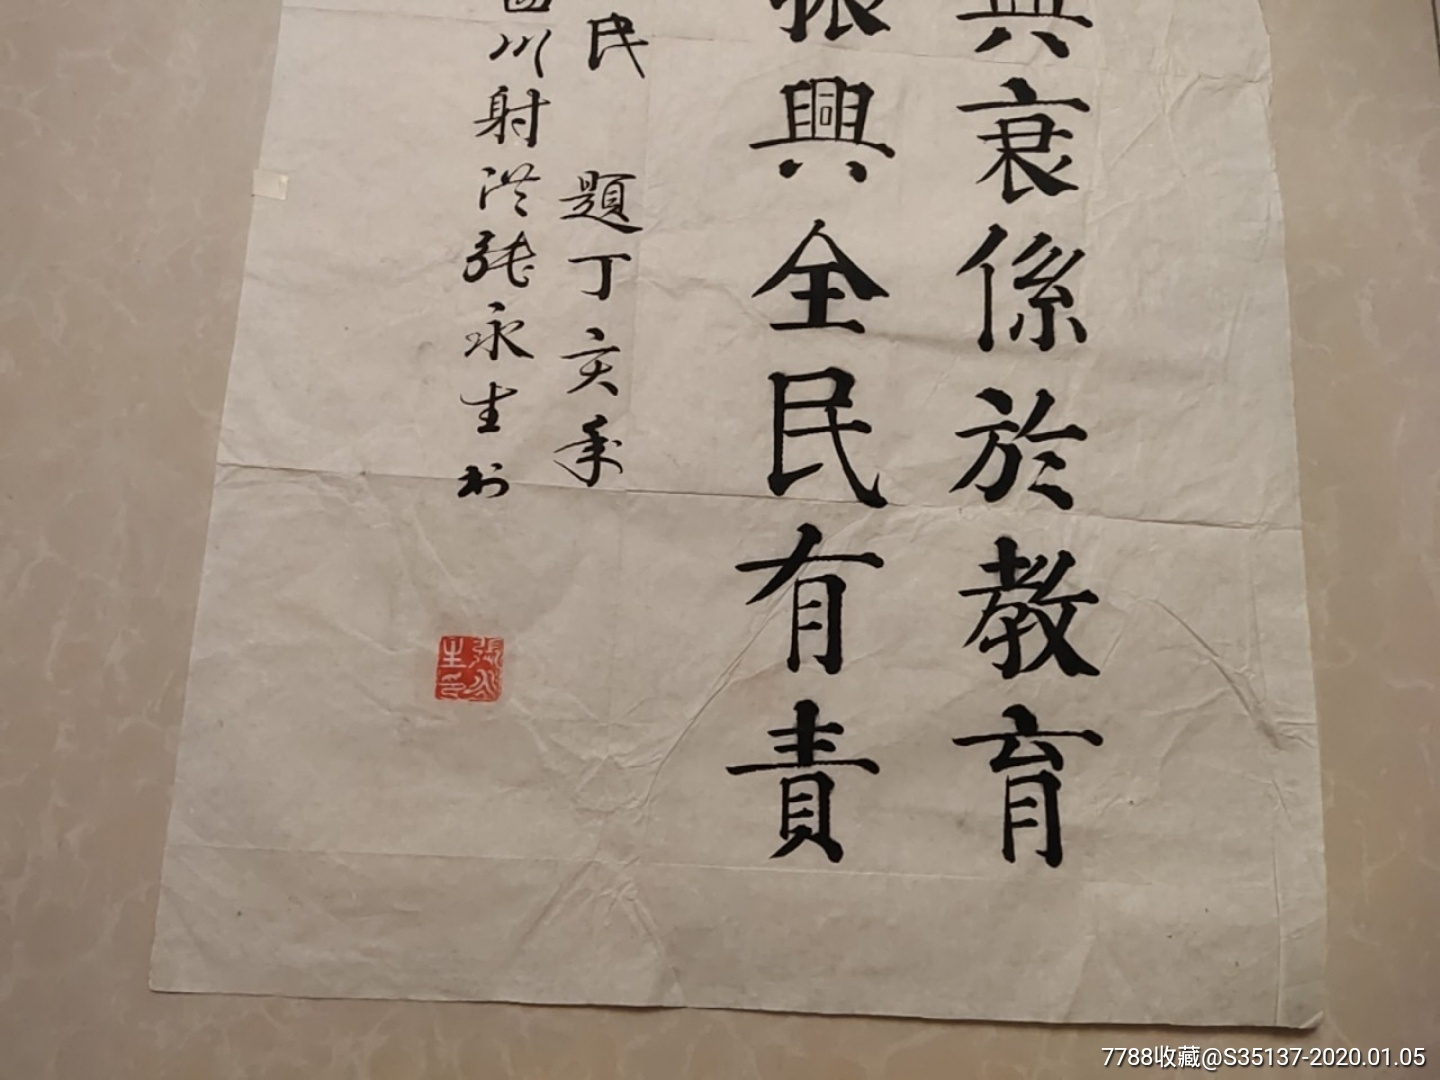 興衰係於教育
振興全民有責
民 題丁亥年
四川射洪張永生書
張永生印
7788收藏@S35137-2020.01.05